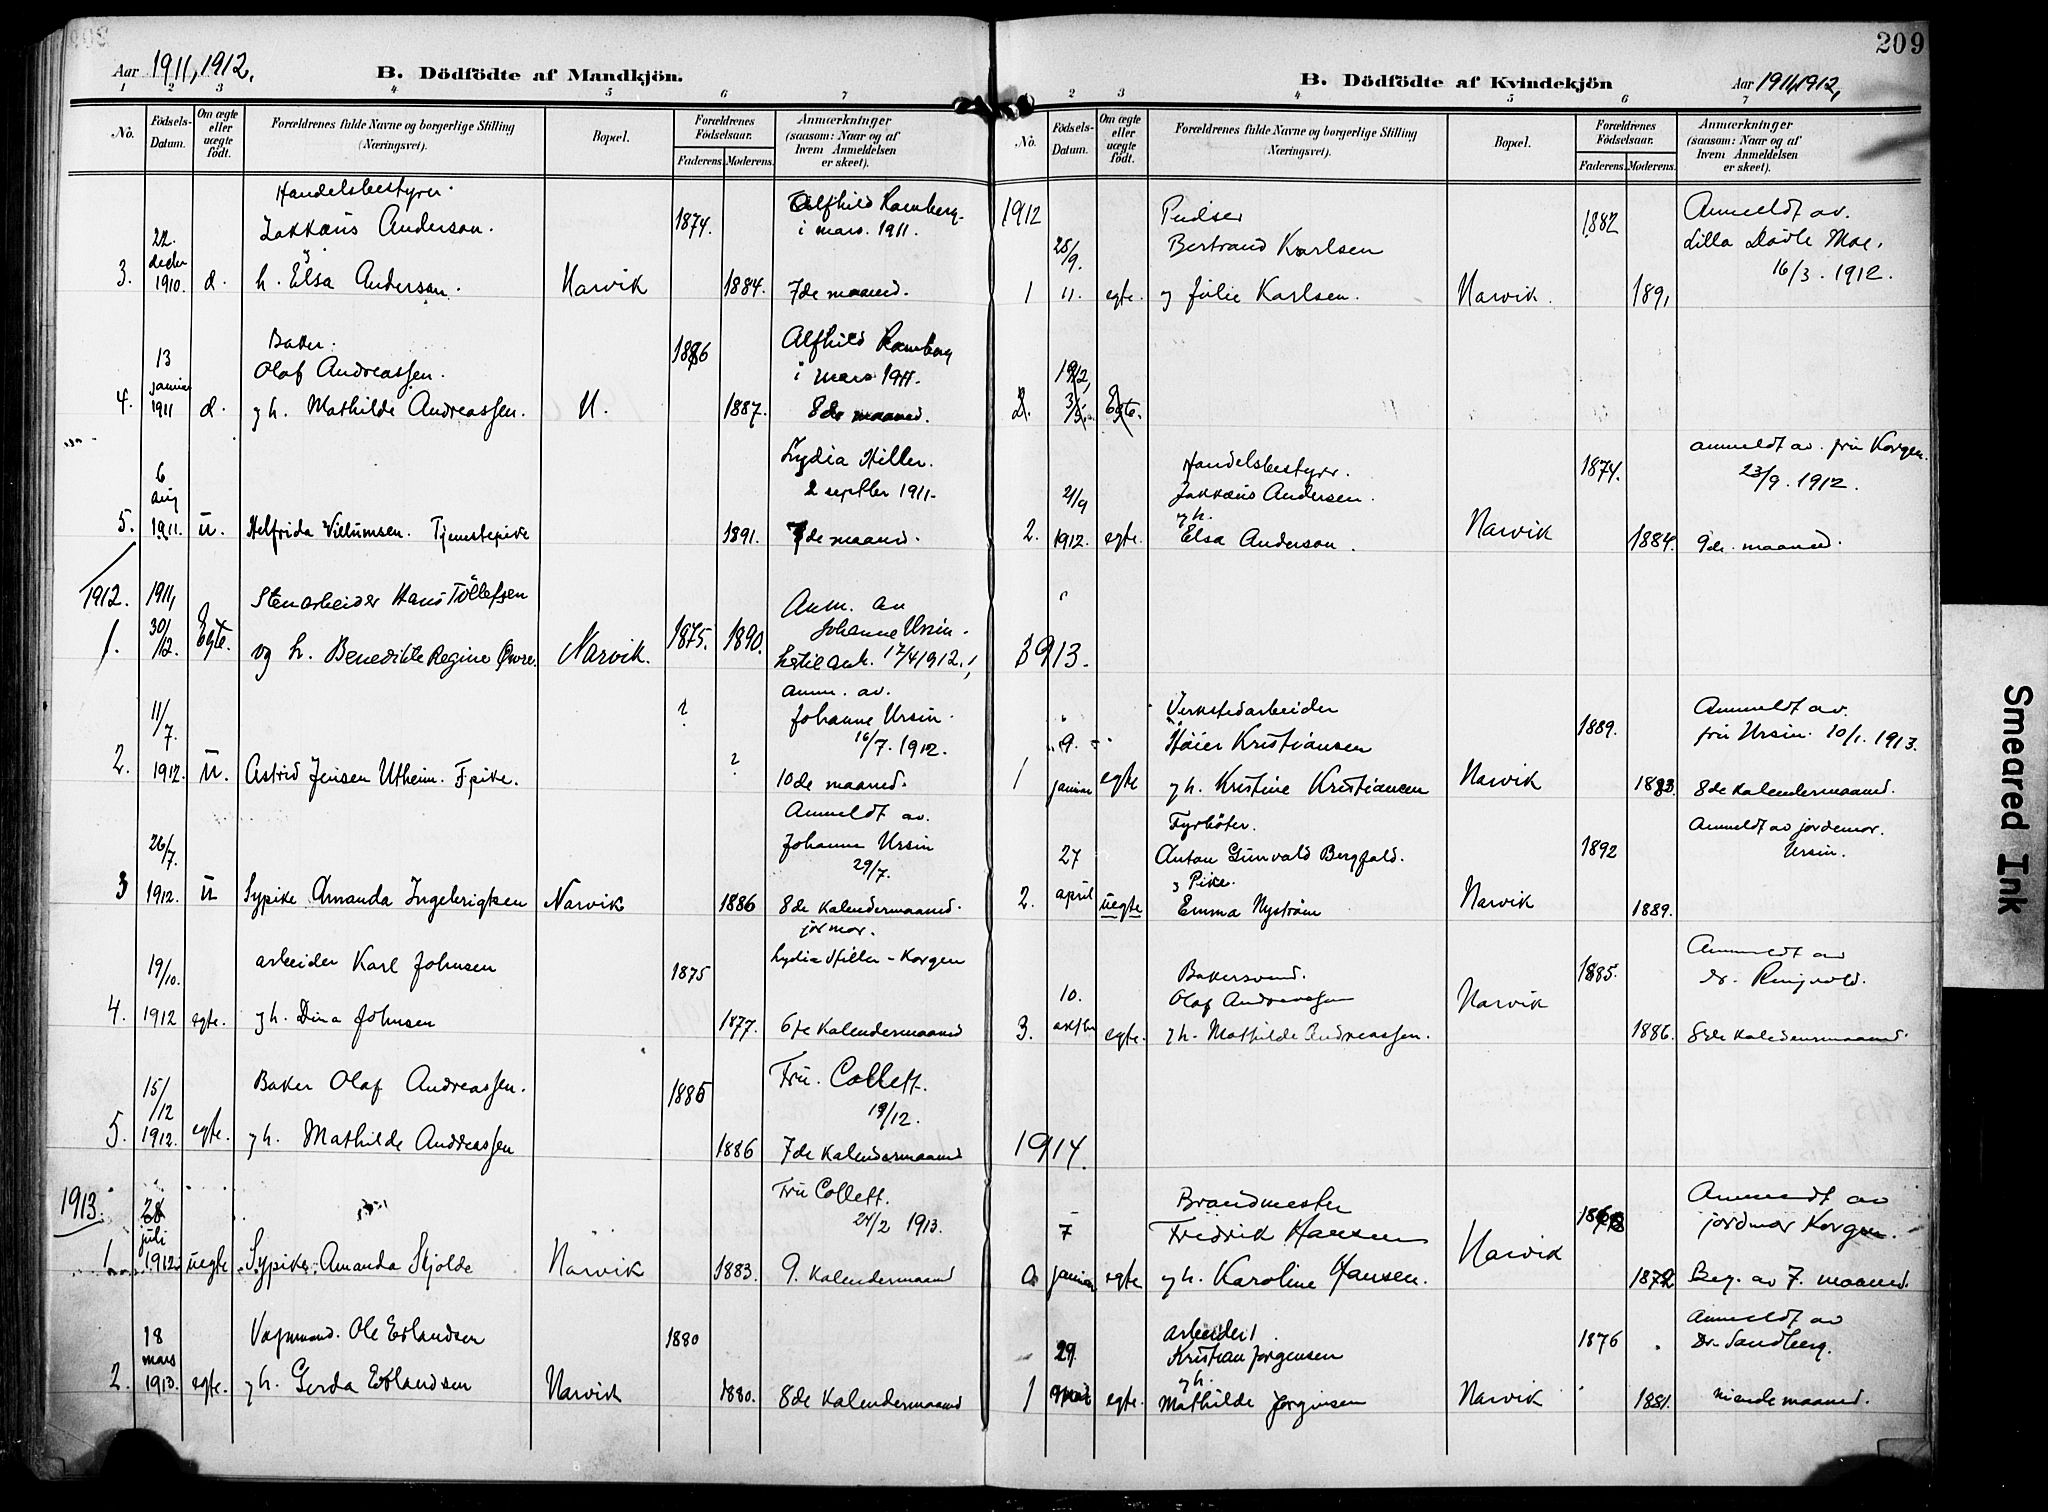 209
Aar 1911, 1912.
B. Dödfödte af Mandkjön.
1 2 3 4 5 6 7
No.
Födsels-Datum.
Om ægte eller uægte födt.
Forældrenes fulde Navne og borgerlige Stilling (Næringsvei).
Bopæl.
Forældrenes Födselsaar.
Faderens. Moderens.
Anmærkninger (saasom: Naar og af hvem Anmeldelsen er skeet).
Handelsbestyrer.
22. Zakkæus Anderson. 1874. Alfhild Ramberg
decbr i mars. 1911.
3. 1910. d. h. Elsa Anderson. Narvik 1884. 7de maaned.
Baker.
13 Olaf Andreassen. 1886 Alfhild Ramberg
januar i mars 1911.
4. 1911 d. og h. Mathilde Andreassen. N. 1887. 8de maaned.
6 Lydia Hiller.
aug 2 septbr 1911.
5. 1911. u. Helfrida Villumsen. Tjenestepike 1891. 7de maaned.
1912. 1911, Stenarbeider Hans Tollefsen Anm. av
30/12. Johanne Ursin.
1. Egte. og h. Benedikte Regine Øvre. Narvik. 1875. 1890. 17/4 1912.
11/7. ? Anm. av.
Johanne Ursin.
16/7. 1912.
2. 1912. u. Astrid Jensen Utheim. Fpike. ? 10de maaned.
Anmeldt av.
26/7. Johanne Ursin
29/7.
3 1912. u Sypike Amanda Ingebrigtsen Narvik 1886 8de Kalendermaaned.
jormor.
19/10. arbeider Karl Johnsen 1875 Lydia Hiller - Korgen
4. 1912 egte. og h. Dina Johnsen 1877. 6te Kalendermaaned
15/12 Baker Olaf Andreassen. 1885 Fru. Collett.
19/12.
5. 1912. egte. og h. Mathilde Andreassen 1886 7de Kalendermaaned
1913. 28 Fru Collett.
juli 24/2 1913.
1. 1912. uegte Sypike. Amanda Skjolde Narvik 1883. 9. Kalendermaaned
18 Vognmand. Ole Erlandsen 1880
mars
2. 1913. egte. og h. Gerda Erlandsen Narvik 1880. 8de Kalendermaaned
B. Dödfödte af Kvindekjön
Aar 1911, 1912,
2 3 4 5 6 7
No.
Födsels-Datum.
Om ægte eller uægte födt.
Forældrenes fulde Navne og borgerlige Stilling (Næringsvei).
Bopæl.
Forældrenes Födselsaar.
Faderens. Moderens.
Anmærkninger (saasom: Naar og af hvem Anmeldelsen er skeet).
1912 Pudser 1882 Anmeldt av.
28/9. Bertrand Karlsen Lilla Dødle Moe.
16/3. 1912.
1 11. egte. og Julie Karlsen. Narvik. 1891
1912,
2. 3/5. Egte.
Handelsbestyrer. 1874. anmeldt av. fru Korgen.
21/9 Zakkæus Andersen. 23/9. 1912.
og h.
2. 1912. egte. Elsa Anderson. Narvik 1884. 9de. maaned.
1913.
Verkstedarbeider Anmeldt av.
9. Høier Kristiansen 1889. fru Ursin. 10/1. 1913.
1 januar egte og h. Kristine Kristiansen Narvik 1883. 8de Kalendermaaned.
Fyrbøter. Anmeldt av jordemor.
27 Anton Gunvald Bergfald. 1892 Ursin.
og Pike.
2. april uegte Emma Nystrøm Narvik 1889.
Bakersvend. 1885. Anmeldt av
10. Olaf Andreassen dr. Ringvold.
3. oktbr egte. og h. Mathilde Andreassen. Narvik 1886. 8de Kalendermaaned.
1914.
Brandmester Anmeldt av
7 Fredrik Hansen 1868 jordmor Korgen.
januar egte og h. Karoline Hansen. Narvik 1872 Beg. av 7. maaned.
arbeider Anmeldt av
29. Kristian Jorgensen 1876 Dr. Sandberg.
og h.
1 mai egte. Mathilde Jorginsen Narvik 1881. niende maaned.
Smeared Ink